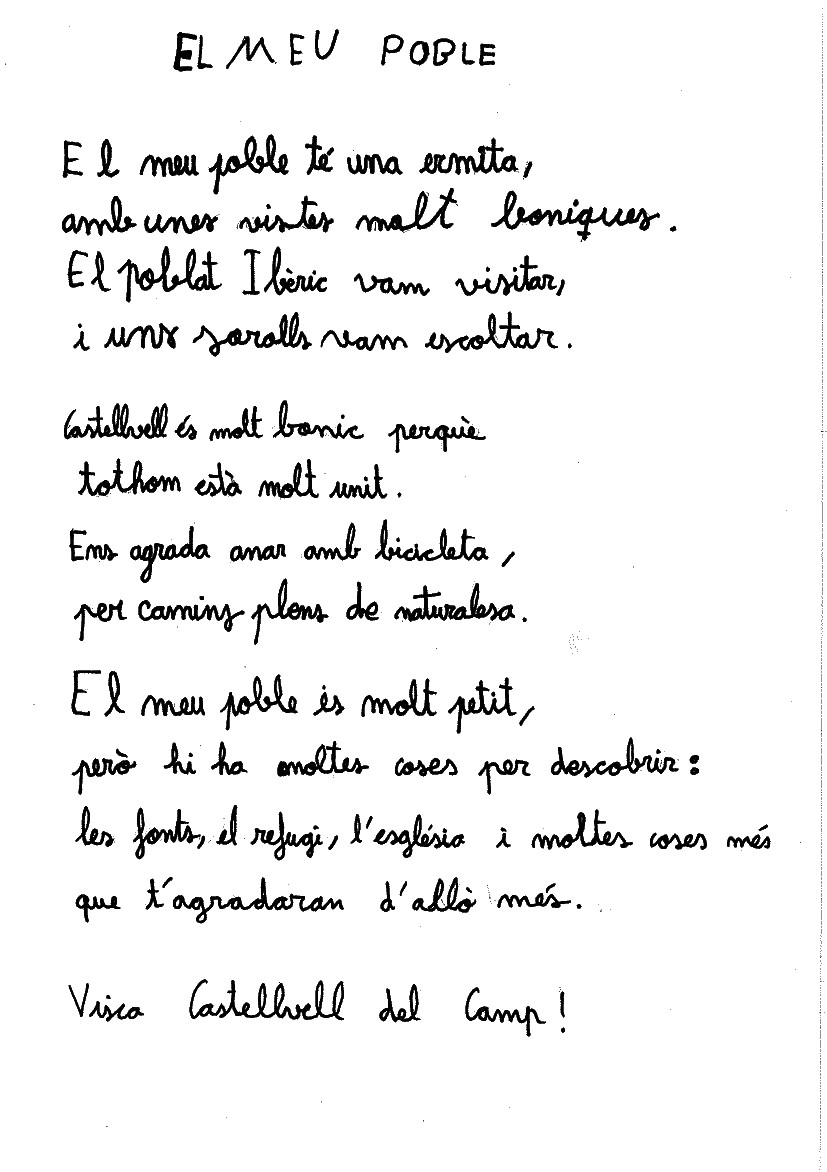 EL MEU POBLE
El meu poble té una ermita,
amb unes vistes molt boniques.
El poblat Ibèric vam visitar,
i uns sorolls vam escoltar.
Castellvell és molt bonic perquè
tothom està molt unit.
Ens agrada anar amb bicicleta,
per camins plens de naturalesa.
El meu poble és molt petit,
però hi ha moltes coses per descobrir:
les fonts, el refugi, l'església i moltes coses més
que t'agradaran d'allò més.
Visca Castellvell del Camp!